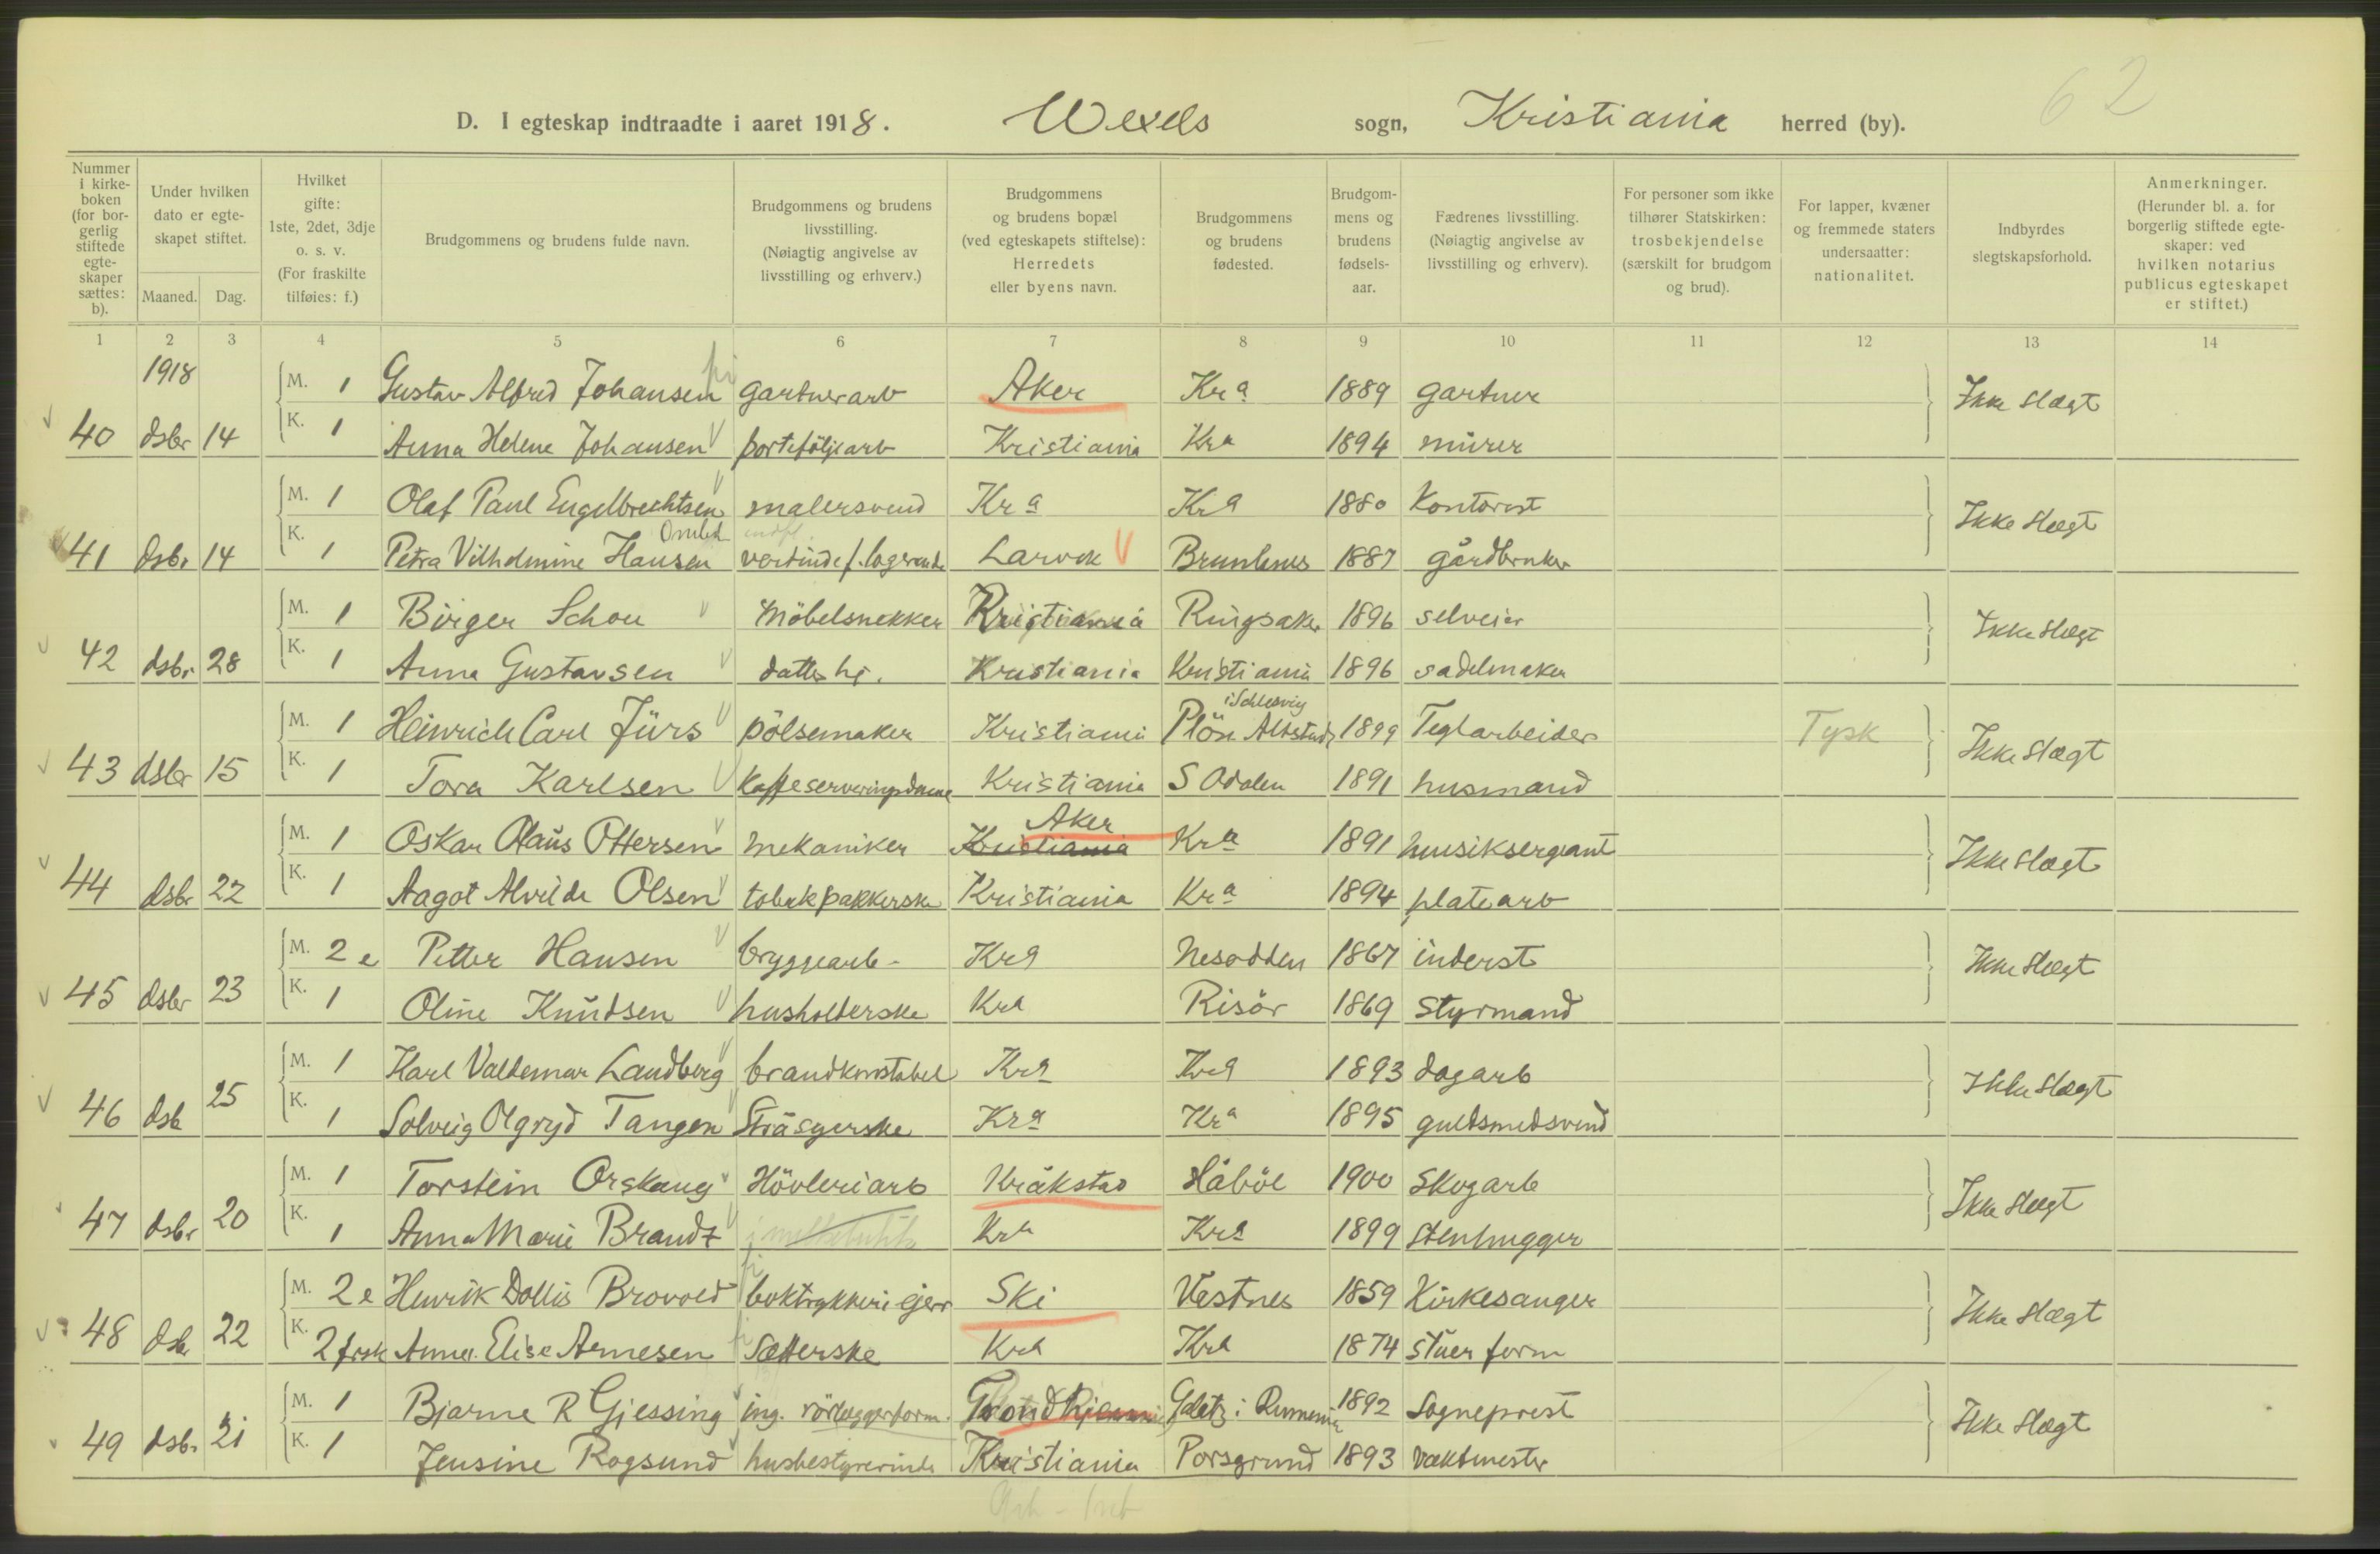 62
D. I egteskap indtraadte i aaret 1918. Wexels sogn, Kristiania herred (by).
Nummer i kirkeboken (for borgerlig stiftede egteskaper sættes: b).
Under hvilken dato er egteskapet stiftet.
Maaned. Dag.
Hvilket gifte: 1ste, 2det, 3dje o. s. v. (For fraskilte tilføies: f.)
Brudgommens og brudens fulde navn.
Brudgommens og brudens livsstilling. (Nøiagtig angivelse av livsstilling og erhverv.)
Brudgommens og brudens bopæl (ved egteskapets stiftelse): Herredets eller byens navn.
Brudgommens og brudens fødested.
Brudgommens og brudens fødselsaar.
Fædrenes livsstilling. (Nøiagtig angivelse av livsstilling og erhverv).
For personer som ikke tilhører Statskirken: trosbekjendelse (særskilt for brudgom og brud).
For lapper, kvæner og fremmede staters undersaatter: nationalitet.
Indbyrdes slegtskapsforhold.
Anmerkninger. (Herunder bl. a. for borgerlig stiftede egteskaper: ved hvilken notarius publicus egteskapet er stiftet.)
1 2 3 4 5 6 7 8 9 10 11 12 13 14
1918
M. 1 Gustav Alfred Johansen gartnerarb Aker Kra 1889 gartner Ikke slægt
40 dsbr 14 K. 1 Anna Helene Johansen portefőljearb Kristiania Kra 1894 murer
M. 1 Olaf Paul Engelbrechtsen malersvend Kra Kra 1880 Kontorist Ikke slægt
41 dsbr 14 K. 1 Petra Vilhelmine Hansen Larvik Brunlanes 1887 gårdbruker
M. 1 Birger Schou Möbelsnekker Kristiania Ringsaker 1896 selveier Ikke slægt
42 dsbr 28 K. 1 Anna Gustavsen datter hj. Kristiania Kristiania 1896 sadelmaker
i Schlesvig
M. 1 Heinrich Carl Jürs pölsemaker Kristiania Plön 1899 Teglarbeider Tysk Ikke slægt
43 dsbr 15 K. 1 Tora Karlsen Kaffeserveringsdame Kristiania S Odalen 1891 husmand
Aker
M. 1 Oskar Olaus Ottersen mekaniker Kristiania Kra 1891 musiksergeant Ikke slægt
44 dsbr 22 K. 1 Aagot Alvilde Olsen tobakpakkerske Kristiania Kra 1894 platearb
M. 2 e Petter Hansen bryggearb- Kra Nesodden 1867 inderst Ikke slægt
45 dsbr 23 K. 1 Oline Knudsen husholderske Kra Risör 1869 styrmand
M. 1 Karl Valdemar Landberg brandkonstabel Kra Kra 1893 dagarb Ikke slægt
46 dsb 25 K. 1 Solveig Olgryd Tangen Stråsyerske Kra Kra 1895 guldsmedsvend
M. 1 Torstein Orskaug Hövleriarb Kråkstad Håböl 1900 Skogarb Ikke slægt
47 dsbr 20 K. 1 Anna Marie Brandt Kra Kra 1899 Stenhugger
M. 2 e Henrik Dollis Brovold boktrykkeri ejer Ski Vestnes 1859 Kirkesanger Ikke slægt
48 dsb 22 K. 2 frsk Anna Elise Arnesen Sætterske Kra Kra 1874 stuerform
M. 1 Bjarne R Gjessing ing. rörleggerform. Trondhjem Galatz i Rumenia 1892 Sogneprest Ikke slægt
49 dsbr 21 K. 1 Jensine Rogsund husbestyrerinde Kristiania Porsgrund 1893 vaktmester